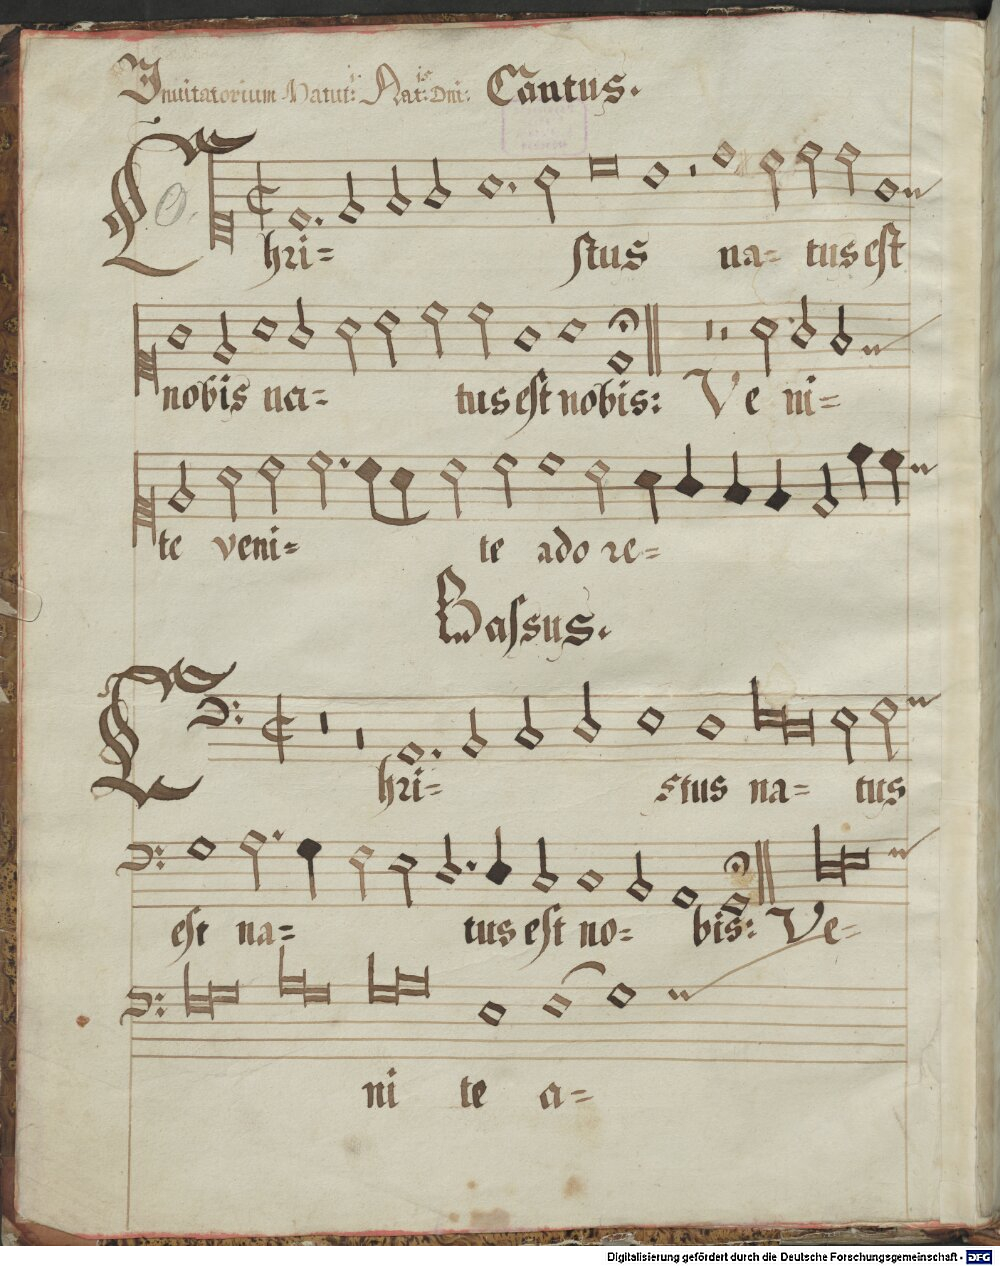 Inuitatorium Matut: Nat:is Dni: Cantus.
Chri= stus na= tus est
nobis na= tus est nobis: Ve ni=
te veni= te ado re=
Bassus.
Chri= stus na= tus
est na= tus est no= bis: Ve=
ni te a=
Digitalisierung gefördert durch die Deutsche Forschungsgemeinschaft - DFG